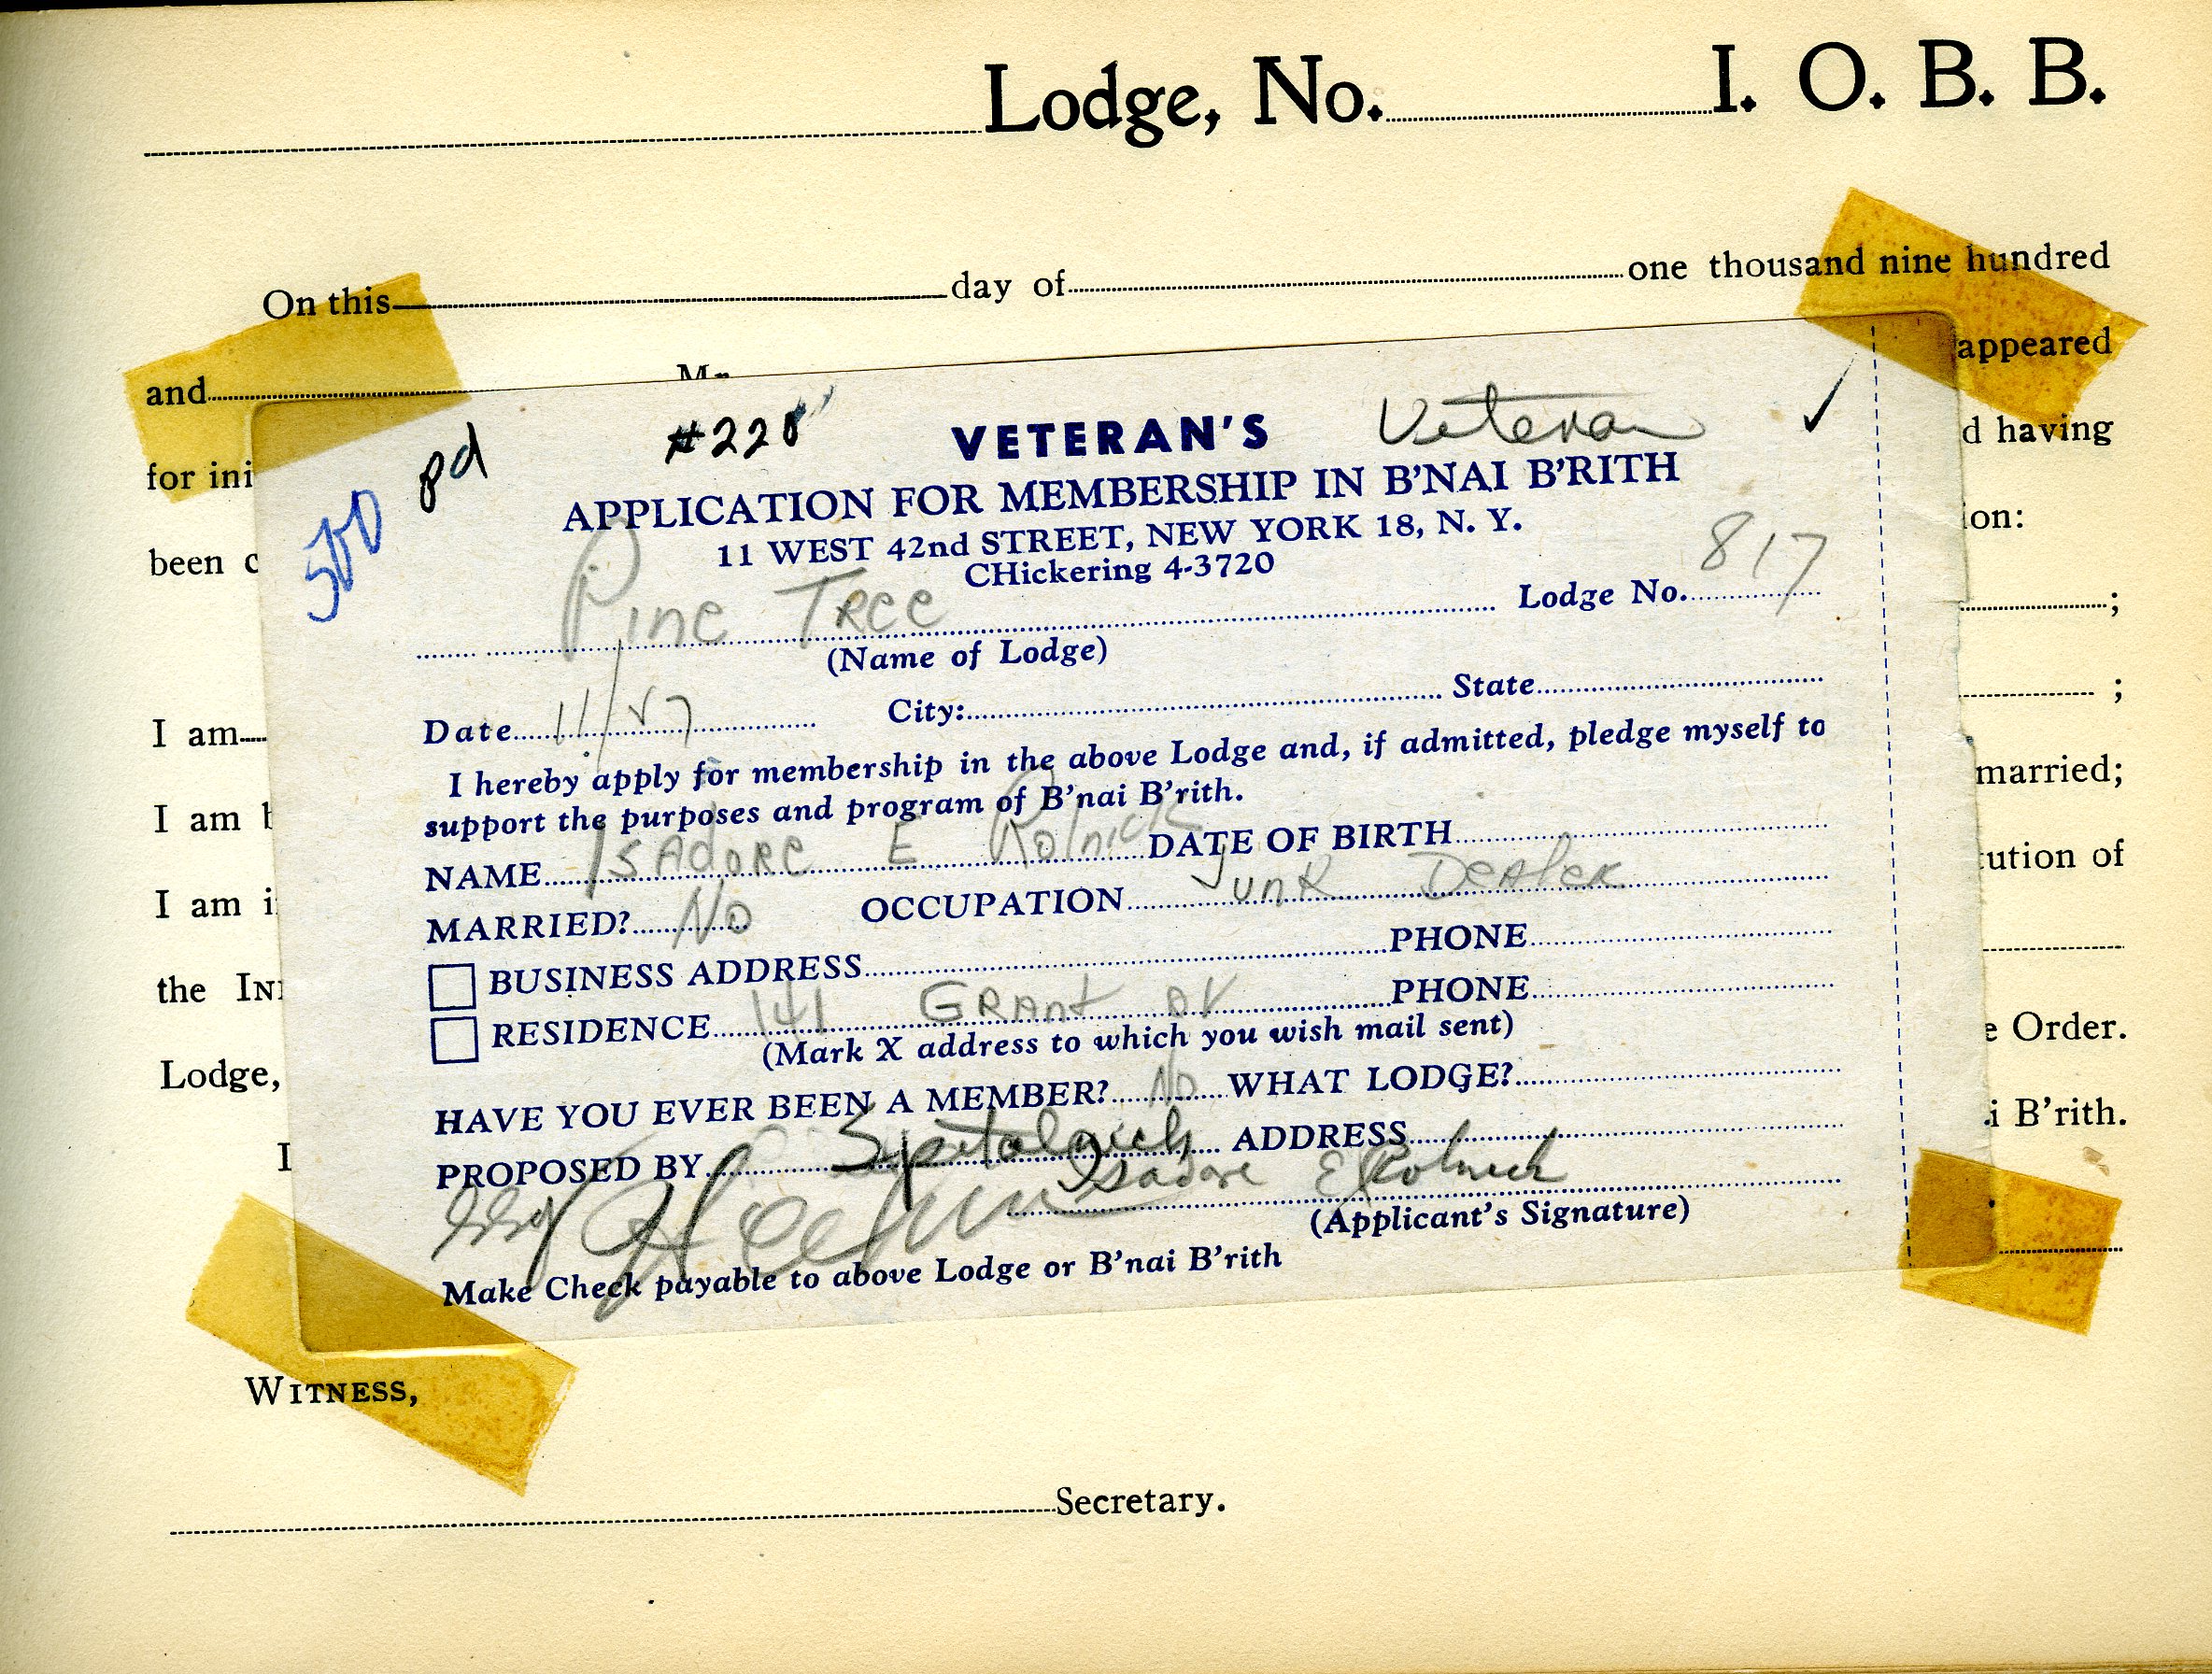 Lodge, No. I. O. B. B.
On this day of one thousand nine hundred
and Mr. appeared
for ini d having
been c ion:
;
;
I am married;
I am b
I am i tution of
the IN
Lodge, e Order.
I i B'rith.
pd #228 VETERAN'S Veteran ✓
500
APPLICATION FOR MEMBERSHIP IN B'NAI B'RITH
11 WEST 42nd STREET, NEW YORK 18, N. Y.
CHickering 4-3720
Pine Tree Lodge No. 817
(Name of Lodge)
Date 11/ City: State
I hereby apply for membership in the above Lodge and, if admitted, pledge myself to
support the purposes and program of B'nai B'rith.
NAME Isadore E Rolnick DATE OF BIRTH
MARRIED? No OCCUPATION Junk Dealer
BUSINESS ADDRESS PHONE
RESIDENCE 141 Grant av PHONE
(Mark X address to which you wish mail sent)
HAVE YOU EVER BEEN A MEMBER? No WHAT LODGE?
PROPOSED BY ADDRESS
Isadore E Rolnick
(Applicant's Signature)
Make Check payable to above Lodge or B'nai B'rith
WITNESS,
Secretary.